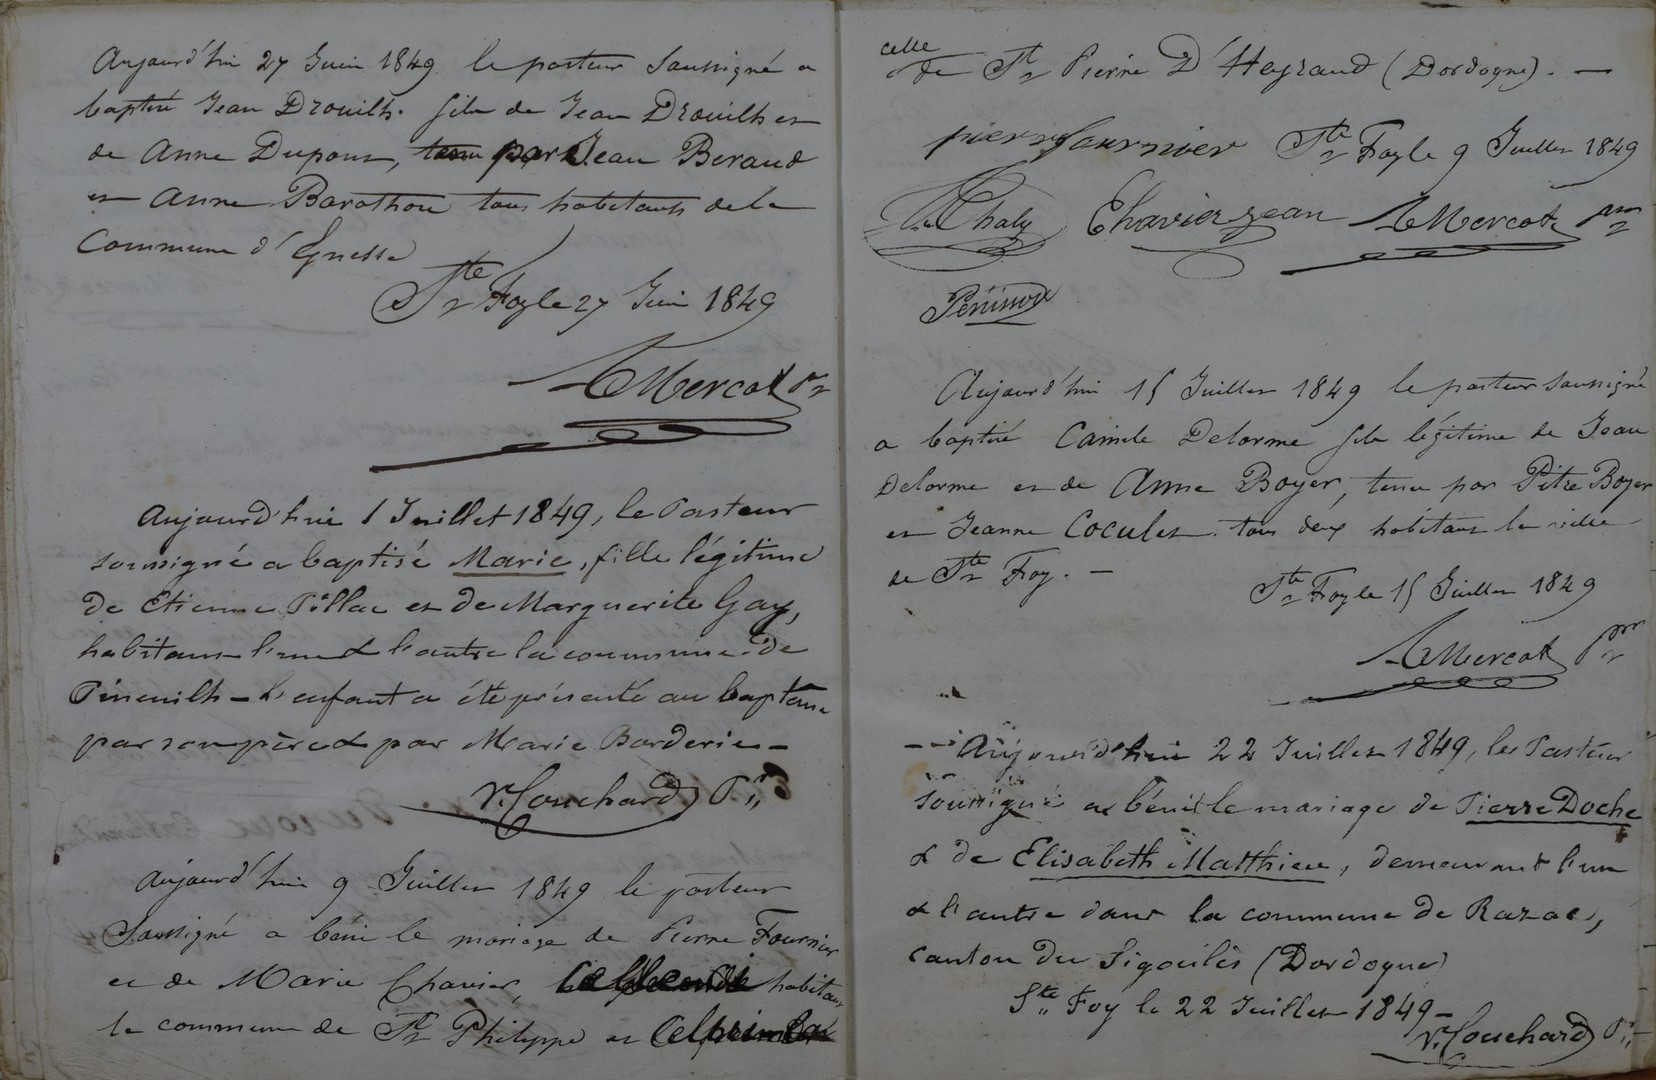 Aujourd'hui 27 Juin 1849 le pasteur Soussigné a
baptisé Jean Drouilh. fils de Jean Drouilh et
de Anne Dupons, tenu par Jean Beraud
et Anne Barathon tous habitants de la
Commune d'
Ste Foy le 27 Juin 1849
Mercat Pr
Aujourd'hui 1 Juillet 1849, le Pasteur
soussigné a baptisé Marie, fille légitime
de Etienne Pillac et de Marguerite Gay,
habitans l'un & l'autre la commune de
Pineuilh – L'enfant a été présenté au baptême
par son père & par Marie Barderie –
V. Couchard Pr
Aujourd'hui 9 Juillet 1849 le pasteur
Soussigné a béni le mariage de Pierre Fournier
et de Marie Chavier, habitans
la commune de St Philippe et
celle
de St Pierre D'Heyraud (Dordogne). –
pierre fournier Ste Foy le 9 Juillet 1849
Chaly Chavier jean Mercat pr
Aujourd'hui 15 Juillet 1849 le pasteur Soussigné
a baptisé Camile Delorme fils légitime de Jean
Delorme et de Anne Boyer, tenu par Pitre Boyer
et Jeanne Cocules tous deux habitans la ville
de Ste Foy. –
Ste Foy le 15 Juillet 1849
Mercat pr
– Aujourd'hui 22 Juillet 1849, le Pasteur
soussigné a bénit le mariage de Pierre Doche
& de Elisabeth Matthieu, demeurant l'un
& l'autre dans la commune de Razac,
canton du Sigoulès (Dordogne)
Ste Foy le 22 Juillet 1849 –
V. Couchard Pr